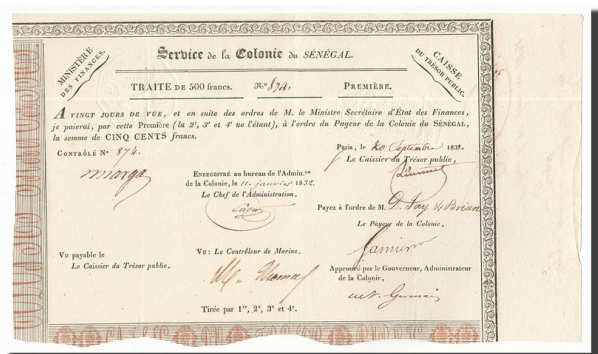 MINISTÈRE
DES FINANCES.
Service de la Colonie du SÉNÉGAL.
CAISSE
DU TRÉSOR PUBLIC.
TRAITE DE 500 francs. No 874. PREMIÈRE.
A VINGT JOURS DE VUE, et en suite des ordres de M. le Ministre Secrétaire d'État des Finances,
je paierai, par cette Première (la 2e, 3e et 4e ne l'étant), à l'ordre du Payeur de la Colonie du SÉNÉGAL,
la somme de CINQ CENTS francs.
Paris, le 20 Septembre 1831.
Le Caissier du Trésor public,
CONTRÔLÉ No 874.
ENREGISTRÉ au bureau de l'Admin.on
de la Colonie, le 11 janvier 1832.
Le Chef de l'Administration,
Payez à l'ordre de M. D.
Le Payeur de la Colonie,
VU payable le
Le Caissier du Trésor public,
VU : Le Contrôleur de Marine,
Approuvé par le Gouverneur, Administrateur
de la Colonie,
Tirée par 1re, 2e, 3e et 4e.